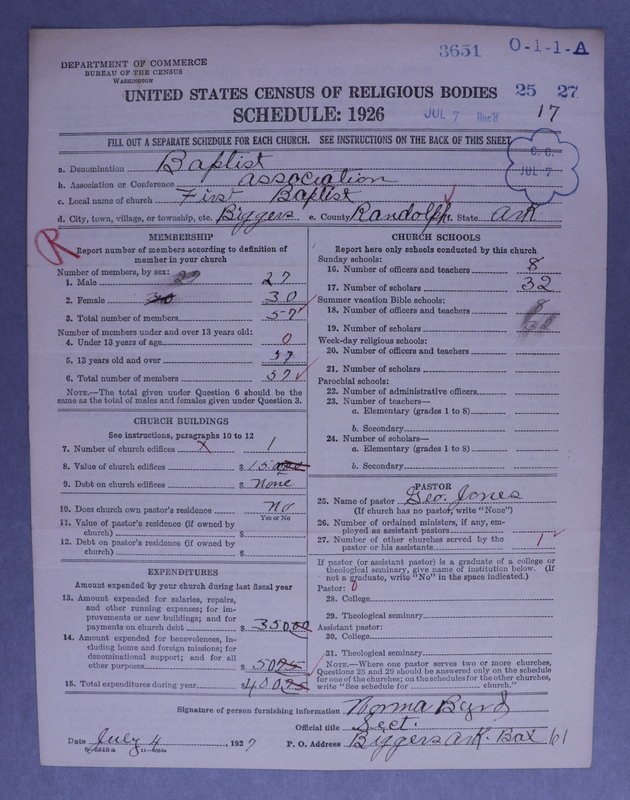 3651 O-1-1-A
DEPARTMENT OF COMMERCE
BUREAU OF THE CENSUS
WASHINGTON
UNITED STATES CENSUS OF RELIGIOUS BODIES 25 27
SCHEDULE: 1926 JUL 7 Rec'd 17
FILL OUT A SEPARATE SCHEDULE FOR EACH CHURCH. SEE INSTRUCTIONS ON THE BACK OF THIS SHEET
C. C.
JUL 7
a. Denomination Baptist
b. Association or Conference association
c. Local name of church First Baptist
d. City, town, village, or township, etc. Biggers e. County Randolph f. State Ark
R
MEMBERSHIP
Report number of members according to definition of
member in your church
Number of members, by sex:
1. Male 27
2. Female 30
3. Total number of members 57
Number of members under and over 13 years old:
4. Under 13 years of age 0
5. 13 years old and over 57
6. Total number of members 57
NOTE.—The total given under Question 6 should be the
same as the total of males and females given under Question 3.
CHURCH BUILDINGS
See instructions, paragraphs 10 to 12
7. Number of church edifices 1
8. Value of church edifices $ 15000
9. Debt on church edifices $ None
10. Does church own pastor's residence? No
Yes or No
11. Value of pastor's residence (if owned by
church) $
12. Debt on pastor's residence (if owned by
church) $
EXPENDITURES
Amount expended by your church during last fiscal year
13. Amount expended for salaries, repairs,
and other running expenses; for im-
provements or new buildings; and for
payments on church debt $ 35000
14. Amount expended for benevolences, in-
cluding home and foreign missions; for
denominational support; and for all
other purposes $ 5075
15. Total expenditures during year $ 40075
CHURCH SCHOOLS
Report here only schools conducted by this church
Sunday schools:
16. Number of officers and teachers 8
17. Number of scholars 32
Summer vacation Bible schools:
18. Number of officers and teachers
19. Number of scholars
Week-day religious schools:
20. Number of officers and teachers
21. Number of scholars
Parochial schools:
22. Number of administrative officers
23. Number of teachers—
a. Elementary (grades 1 to 8)
b. Secondary
24. Number of scholars—
a. Elementary (grades 1 to 8)
b. Secondary
PASTOR
25. Name of pastor Geo. Jones
(If church has no pastor, write "None")
26. Number of ordained ministers, if any, em-
ployed as assistant pastors
27. Number of other churches served by the
pastor or his assistants 1
If pastor (or assistant pastor) is a graduate of a college or
theological seminary, give name of institution below. (If
not a graduate, write "No" in the space indicated.)
Pastor: 0
28. College
29. Theological seminary
Assistant pastor:
30. College
31. Theological seminary
NOTE.—Where one pastor serves two or more churches,
Questions 28 and 29 should be answered only on the schedule
for one of the churches; on the schedules for the other churches,
write "See schedule for church."
Signature of person furnishing information Norma Byrd
Official title Sect.
Date July 4, 1927 P. O. Address Biggers Ark. Box 61